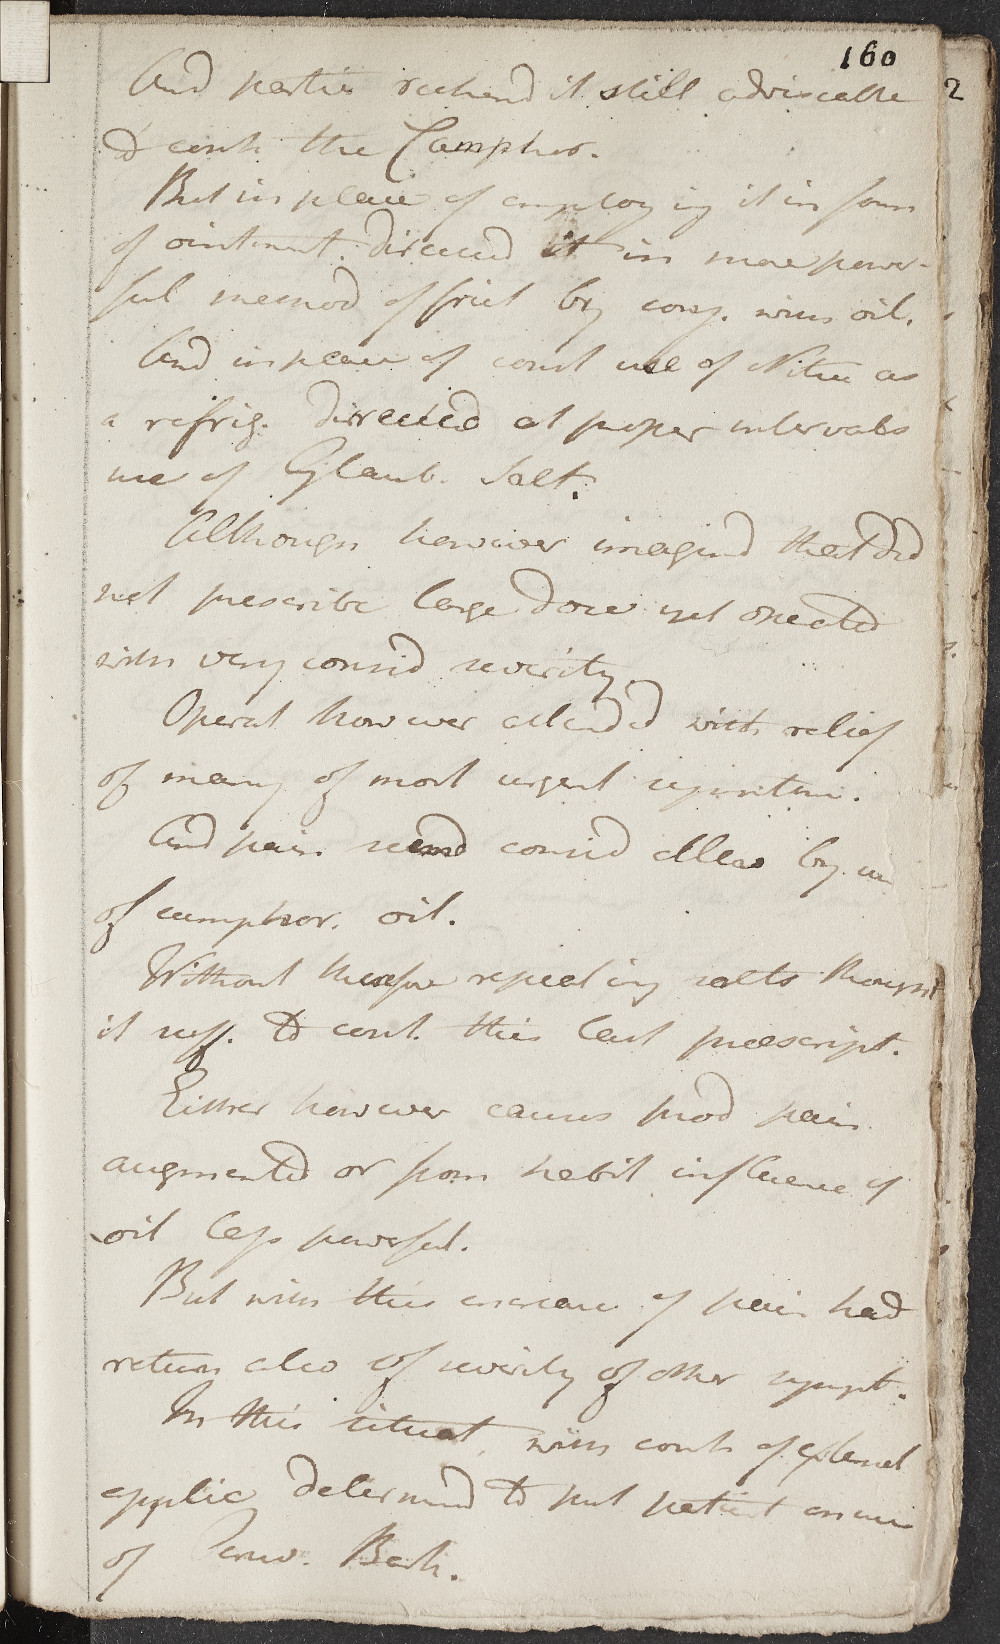 160
And partic reckond it still adviseable
to cont. the Camphor.
But in place of employing it in form
of ointment. directed it in more power-
ful method of frict by conj. with oil.
And in place of const use of Nitre as
a refrig. directed at proper intervals
use of Glaub. Salt.
Although however imagind that did
not prescribe large dose yet operated
with very consid severity.
Operat however attended with relief
of many of most urgent symptoms.
And pain seemd consid allev by use
of camphor. oil.
Without therefore repeating salts thought
it suff. to cont. this last prescript.
Either however causes prod pain
augmented or from habit influence of
oil less powerful.
But with this increase of pain had
return also of severity of other sympt.
In this situat, with cont. of external
applic determind to put patient on use
of Peruv. Bark.
2